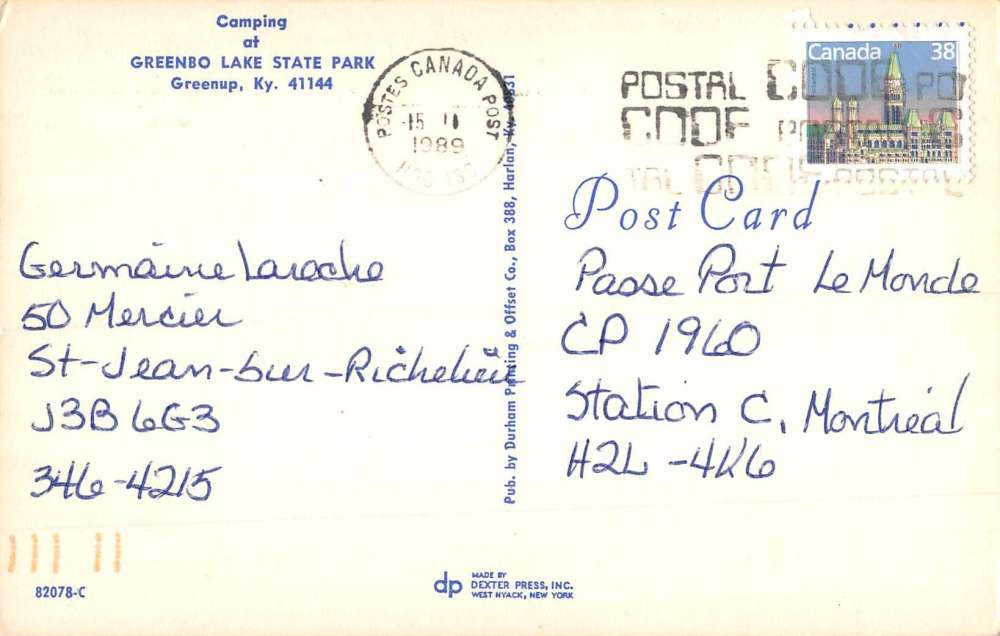 Camping
at
GREENBO LAKE STATE PARK
Greenup, Ky. 41144
POSTES CANADA POST
15 II
1989
Canada 38
POSTAL CODE PO
CODE POSTAL
TAL CODE POSTAL
Post Card
Germaine Laroche
50 Mercier
St-Jean-sur-Richelieu
J3B 6G3
346-4215
Pub. by Durham Printing & Offset Co., Box 388, Harlan, Ky. 40831
Passe Port Le Monde
CP 1960
Station C, Montréal
H2L-4K6
82078-C
dp MADE BY
DEXTER PRESS, INC.
WEST NYACK, NEW YORK